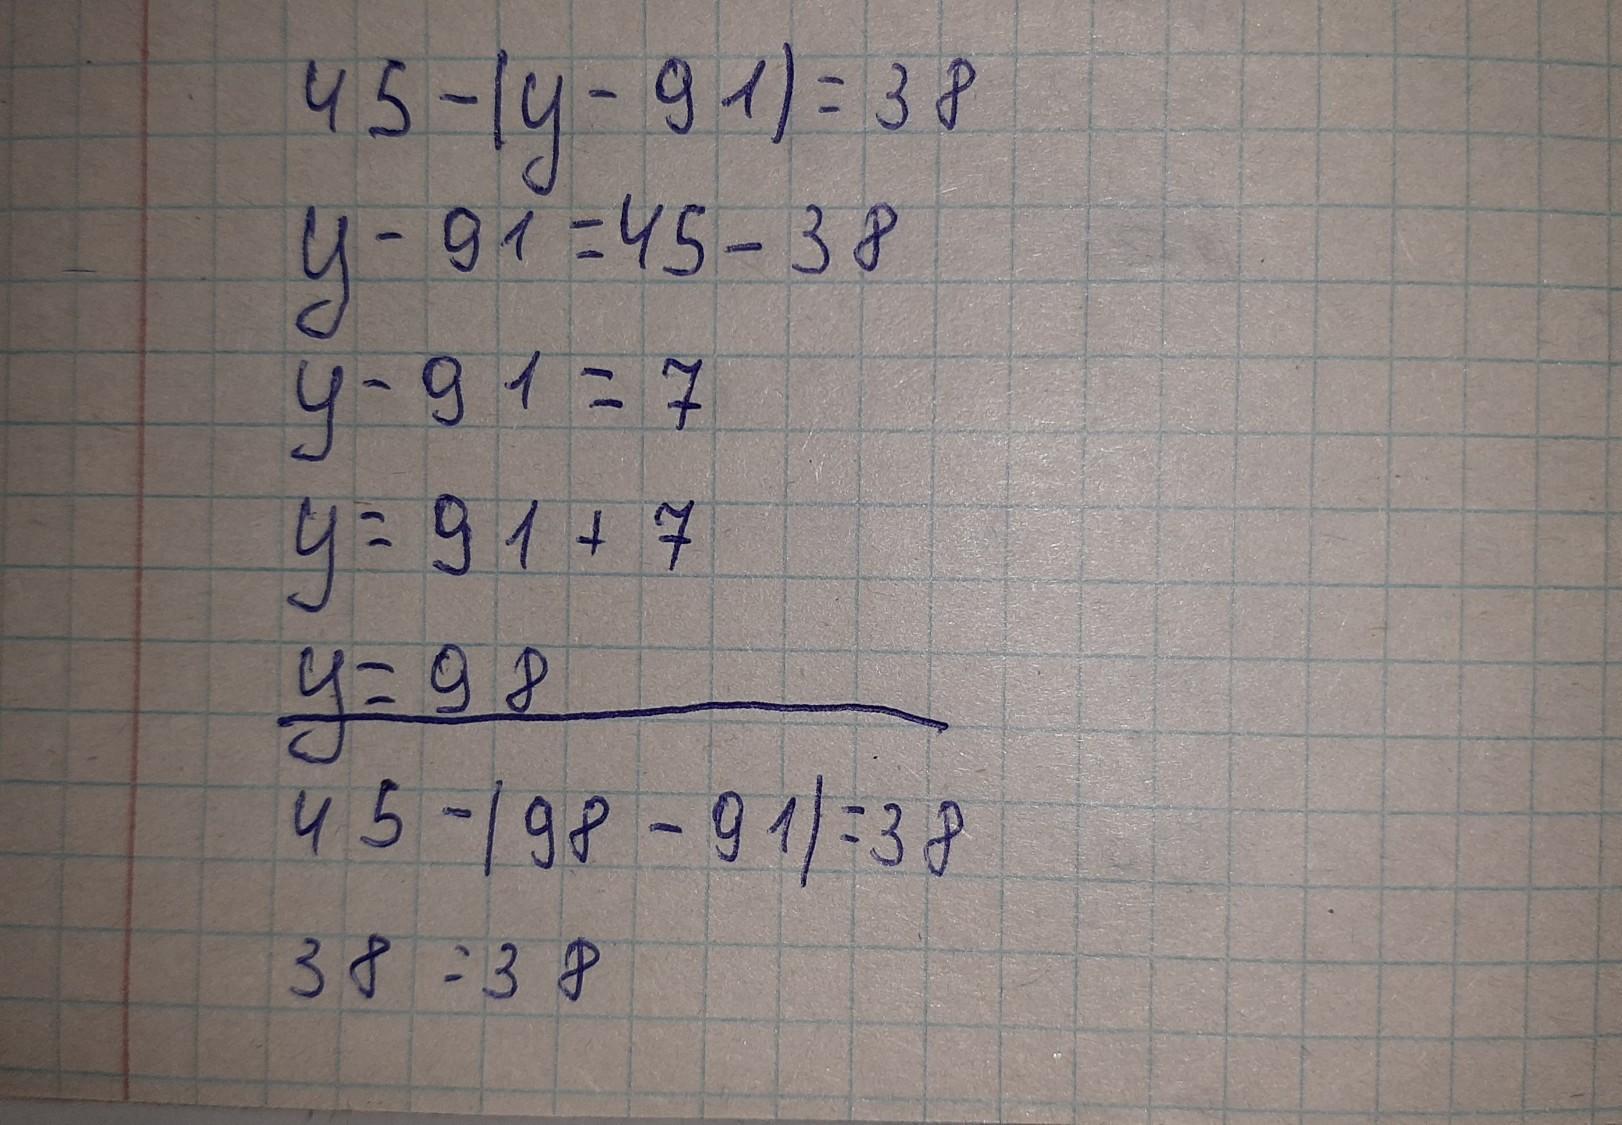 45-(y-91)=38
y-91=45-38
y-91=7
y=91+7
y=98
45-(98-91)=38
38=38